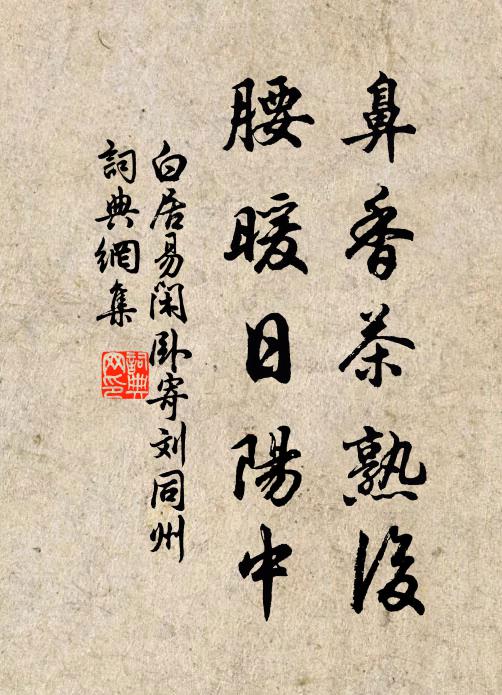 鼻香茶熟後
腰暖日陽中
白居易閑臥寄刘同州
詞典網集
詞典网印